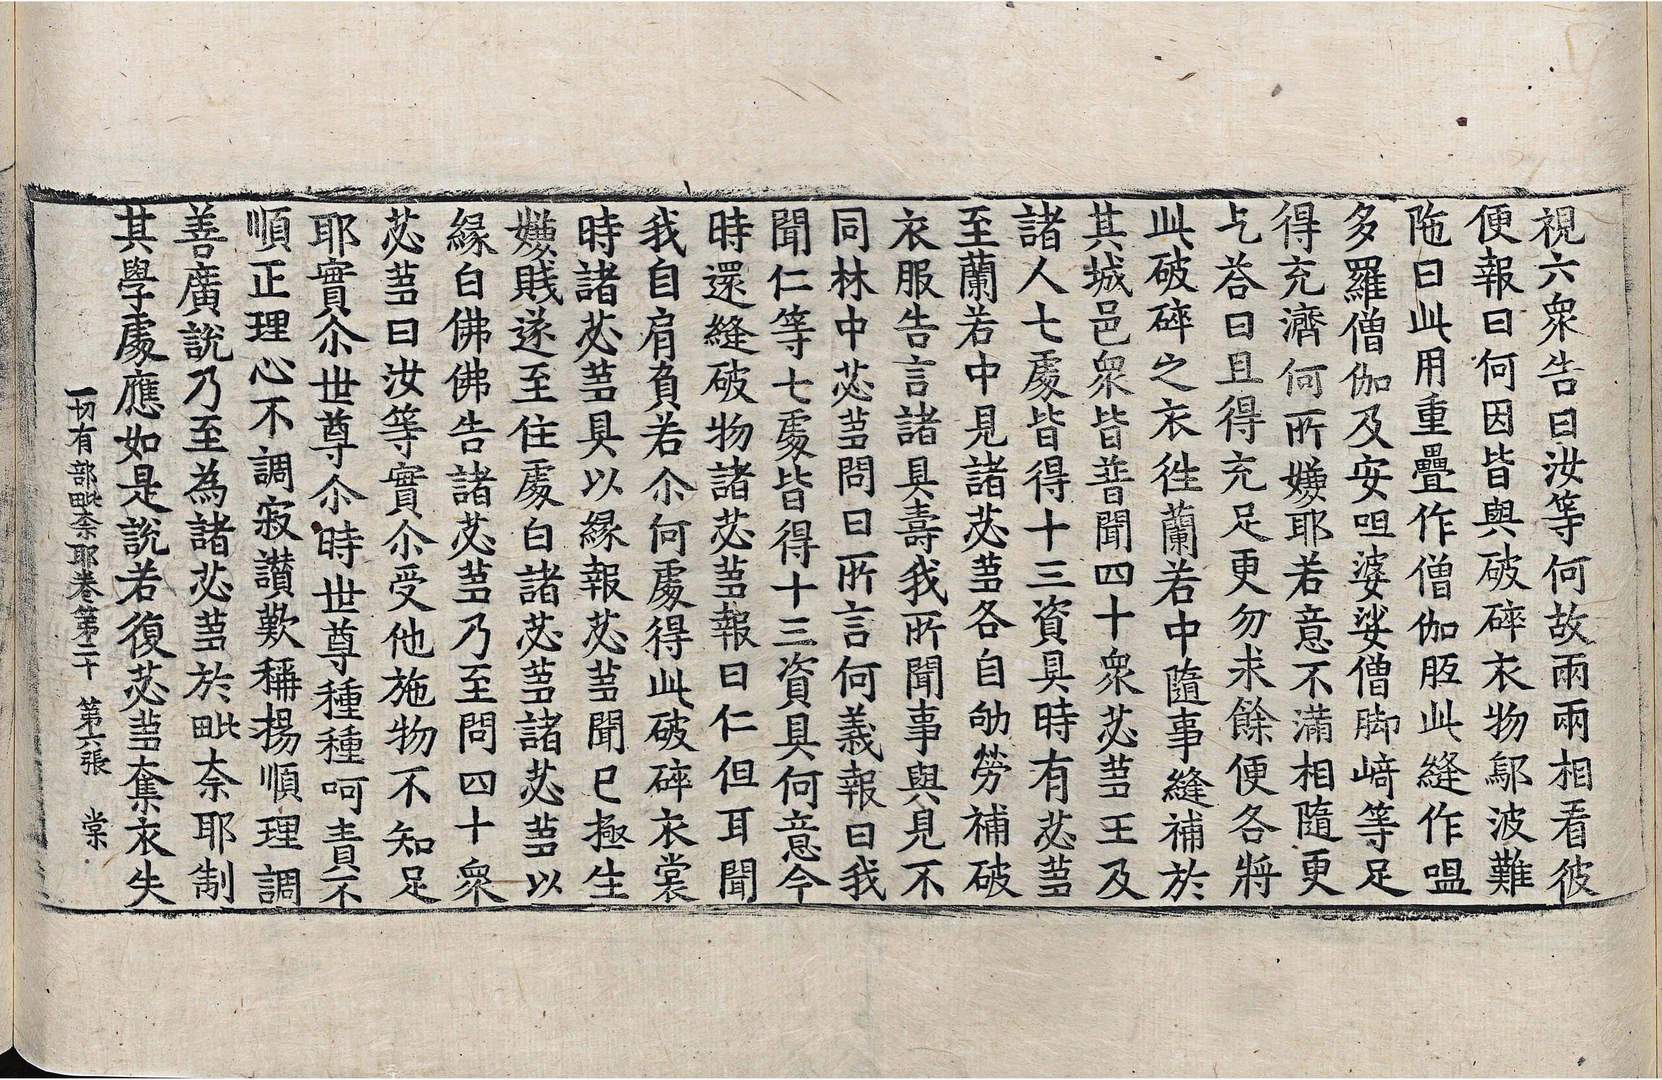 視六衆告曰汝等何故兩兩相看彼
便報曰何因皆與破碎衣物鄔波難
陁曰此用重疊作僧伽胝此縫作嗢
多羅僧伽及安呾婆娑僧脚﨑等足
得充濟何所嫌耶若意不滿相隨更
乞荅曰且得充足更勿求餘便各將
此破碎之衣徃蘭若中隨事縫補於
其城邑衆皆普聞四十衆苾芻王及
諸人七處皆得十三資具時有苾芻
至蘭若中見諸苾芻各自劬勞補破
衣服告言諸具壽我所聞事與見不
同林中苾芻問曰所言何義報曰我
聞仁等七處皆得十三資具何意今
時還縫破物諸苾芻報曰仁但耳聞
我自肩負若尒何處得此破碎衣裳
時諸苾芻具以緣報苾芻聞已極生
嫌賤遂至住處白諸苾芻諸苾芻以
緣白佛佛告諸苾芻乃至問四十衆
苾芻曰汝等實尒受他施物不知足
耶實尒世尊尒時世尊種種呵責不
順正理心不調寂讃歎稱揚順理調
善廣說乃至為諸苾芻於毗奈耶制
其學處應如是說若復苾芻奪衣失
一切有部毗奈耶卷第二十　第六張　棠